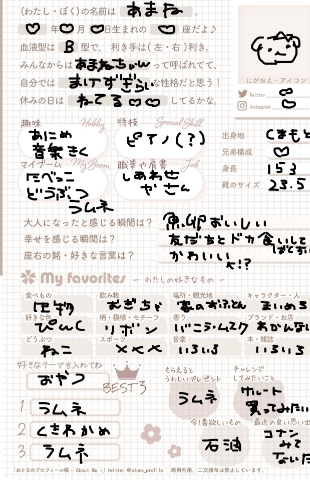 (わたし・ぼく)の名前は あまね
年 月 日生まれの 座だよ♪
血液型は B 型で、 利き手は(左・右)利き。
みんなからは あまねちゃん って呼ばれてて、
自分では まけずぎらい な性格だと思う!
休日の日は ねてる してるかな。
にがおえ・アイコン
Twitter
Instagram
趣味 Hobby
特技 Special Skill
あにめ
音楽きく
ピアノ(?)
マイブーム My Boom
職業や肩書 Job
たべっこ
どうぶつ
ラムネ
しあわせ
やさん
出身地 くまもと
兄弟構成
身長 153
靴のサイズ 23.5
大人になったと感じる瞬間は? 魚卵おいしい
幸せを感じる瞬間は? 友だちとドカ食いして
座右の銘・好きな言葉は? かわいい
My favorites ~ わたしの好きなもの ~
食べもの
飲み物 むぎちゃ
場所・観光地
キャラクター・人
好きな色 ぴんく
柄・模様・モチーフ リボン
香り バニラ・ムスク
ブランド・お店
どうぶつ ねこ
スポーツ ×××
音楽 いろいろ
本・雑誌 いろいろ
好きなテーマを入れてね
おやつ
BEST3
1 ラムネ
2 くさわかめ
3 ラムネ
もらえると
うれしいプレゼント
ラムネ
チャレンジ
してみたいこと
今1番欲しいもの
石油
最近の良い思い出
コナン
みて
「おとなのプロフィール帳 - About Me -」twitter @otona_profile 商用利用、二次頒布は禁止しています。